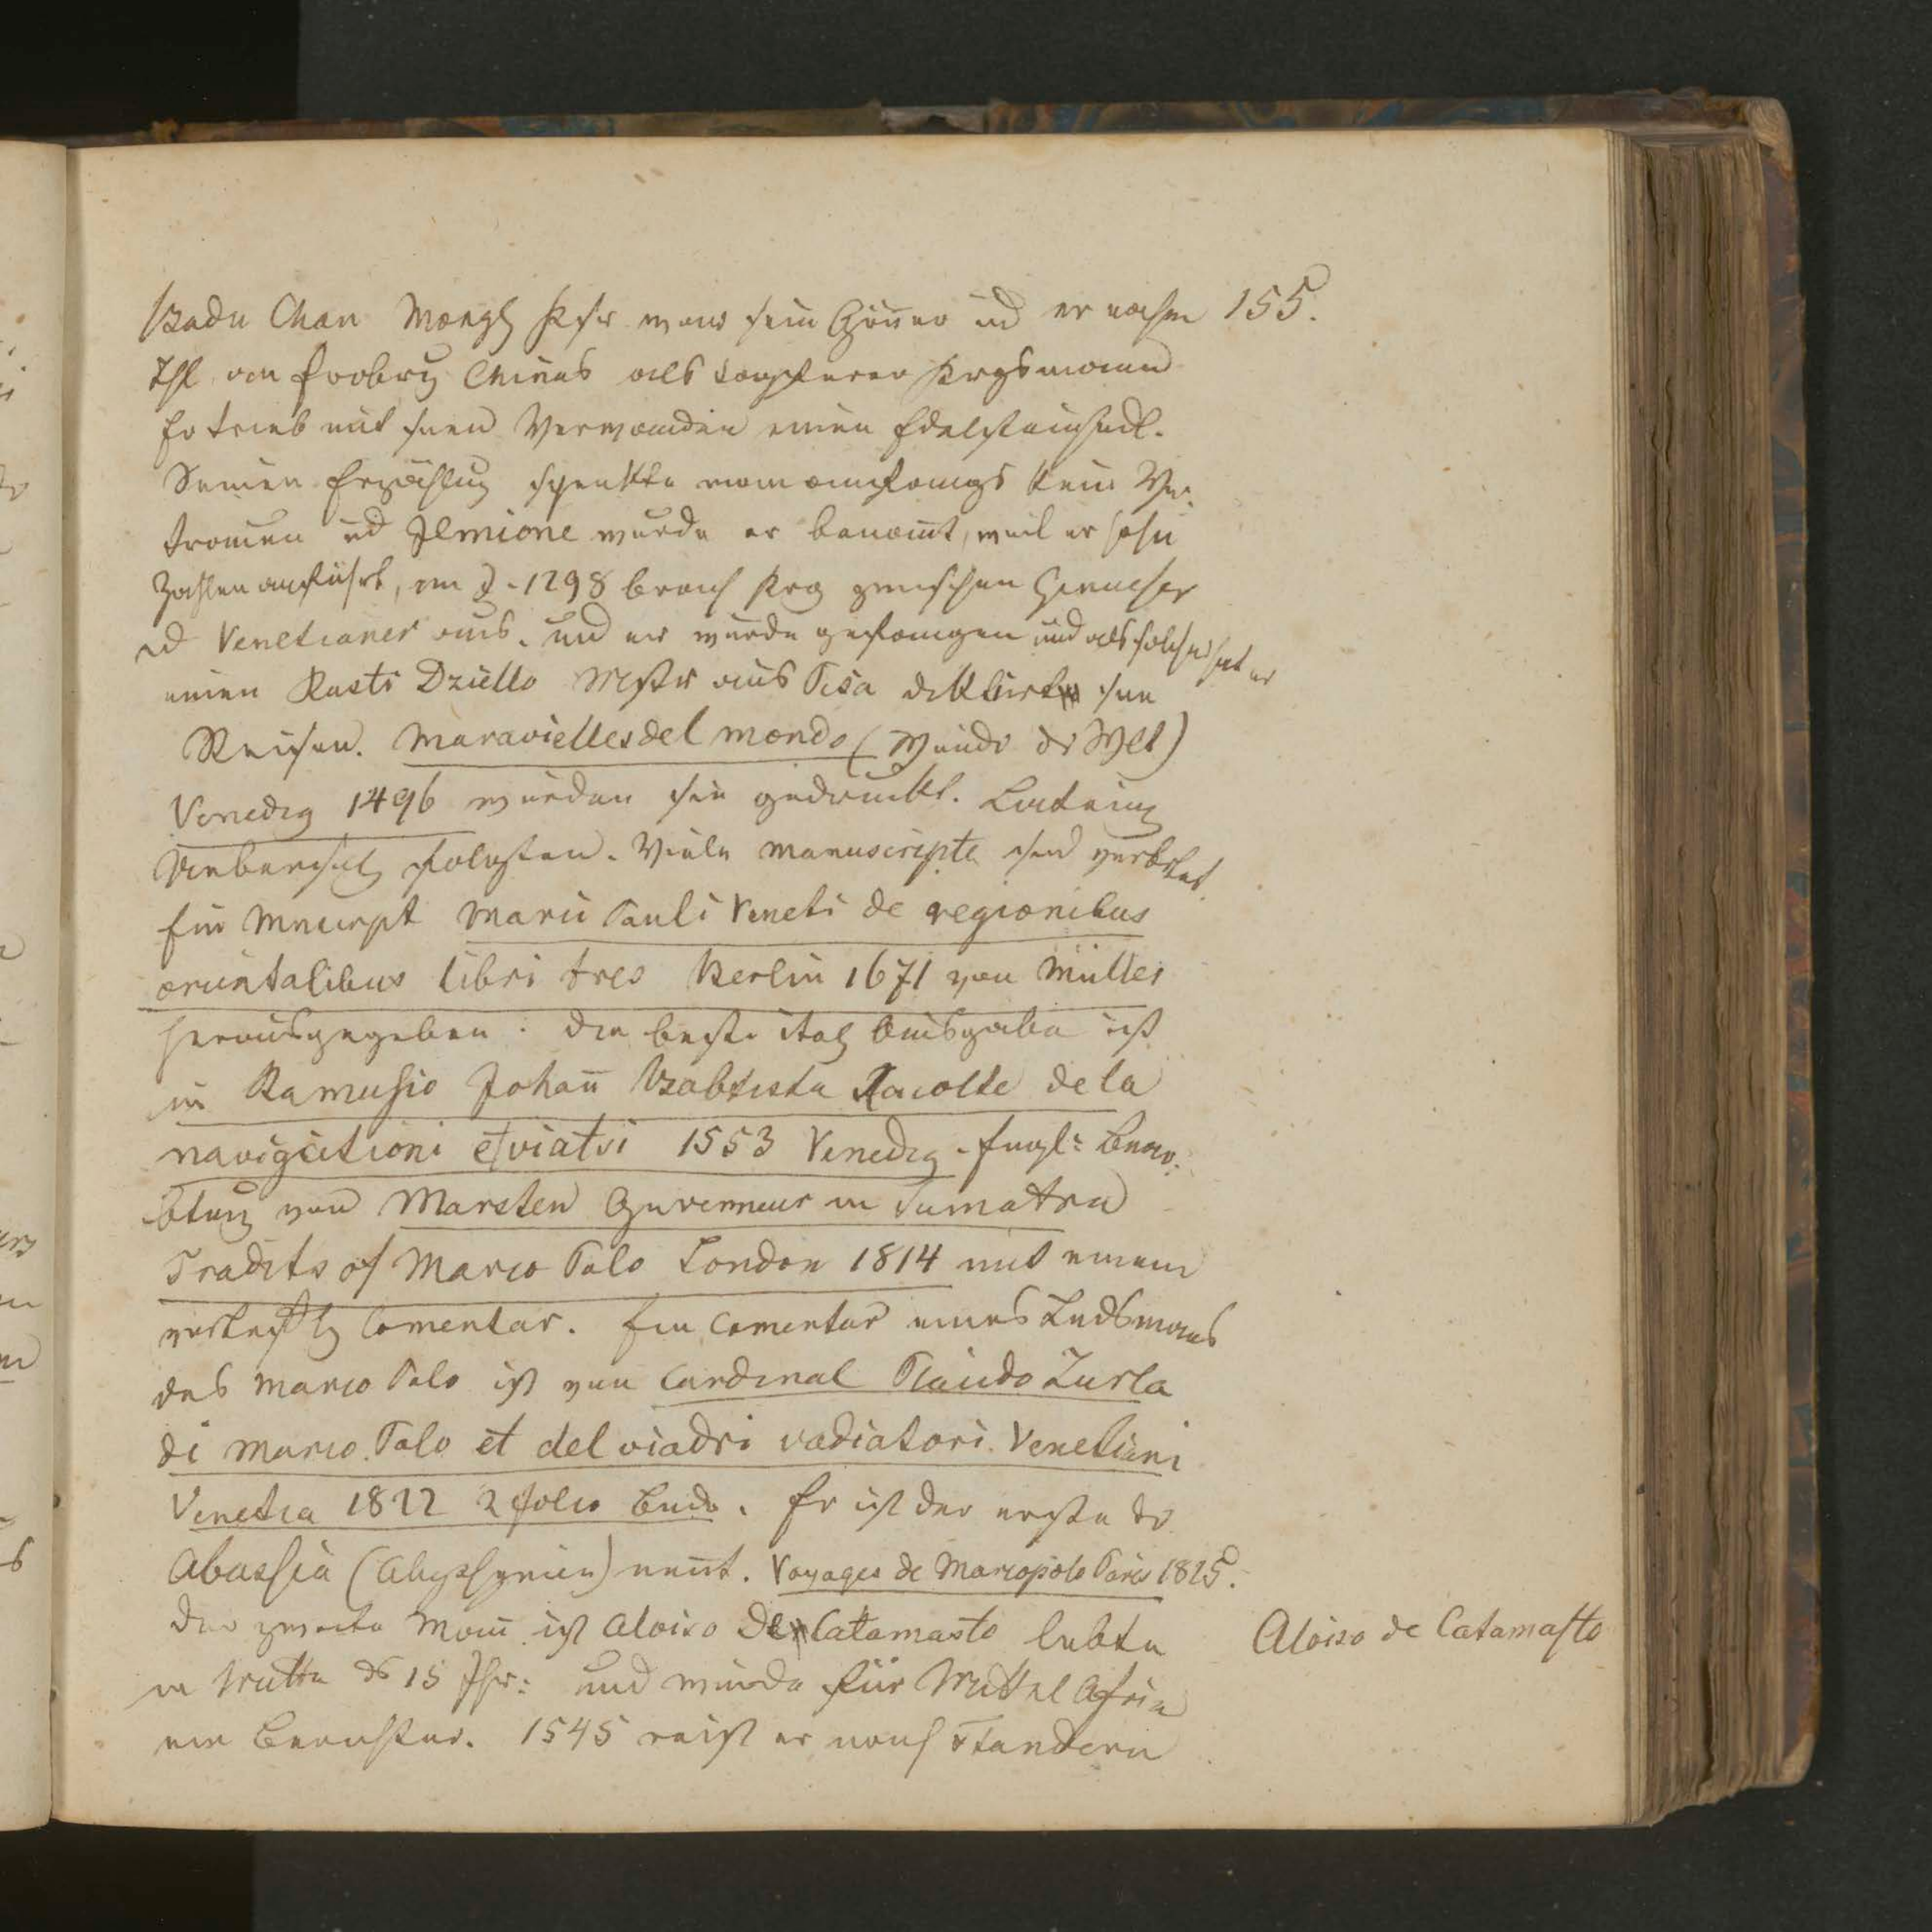 155.
Badu Chan Mongl Ksr war sein Gönner ud er nahm
Thl an Erobrg Chinas als tapferer Krgsmann
Er trieb mit snen Verwanden einen Edelsteinhndl.
Seinen Erzählug schenkte man anfangs kein Ver-
trauen ud Ilmione wurde er benant, weil er hohe
Zahlen anführt, im J. 1298 brach Krg zwischen Genueser
ud Venetianer aus. und er wurde gefangen und als solcher hat er
einen Rasti Dziello Mstr aus Pisa diktiert sne
Reisen. Maravielles del mondo (Wundr dr Welt)
Venedig 1496 wurden sie gedruckt. Lateing
Uebersetzg folgten. Viele Manuscripte sind verbrtet
Ein Mncrpt Marii Pauli Veneti de regionibus
orientalibus libri tres Berlin 1671 von Müller
herausgegeben. Die beste ital Ausgabe ist
in Ramusio Johañ Babtista Racolte dela
navigationi et viatri 1553 Venedig. Engl: Bear-
btung von Marsten Guverneur in Sumatra
Tradits of Marco Polo London 1814 mit einem
Comentar. Ein Comentar eines Lndsmans
des Marco Polo ist von Cardinal Placido Zurla
di Marco Polo et del viadri vadiatori Venetiani
Venetia 1822 2 folio Bnde. Er ist der erste dr
Abassia (Abyssynien) nent. Voyages de Marcopolo Paris 1825.
Der zweite Mañ ist Aloiso De Catamasto lebte
Aloiso de Catamasto
in Mitte ds 15 Jhr: und wurde für Mittel Afrika
ein Berichter. 1545 reist er nach Flandern